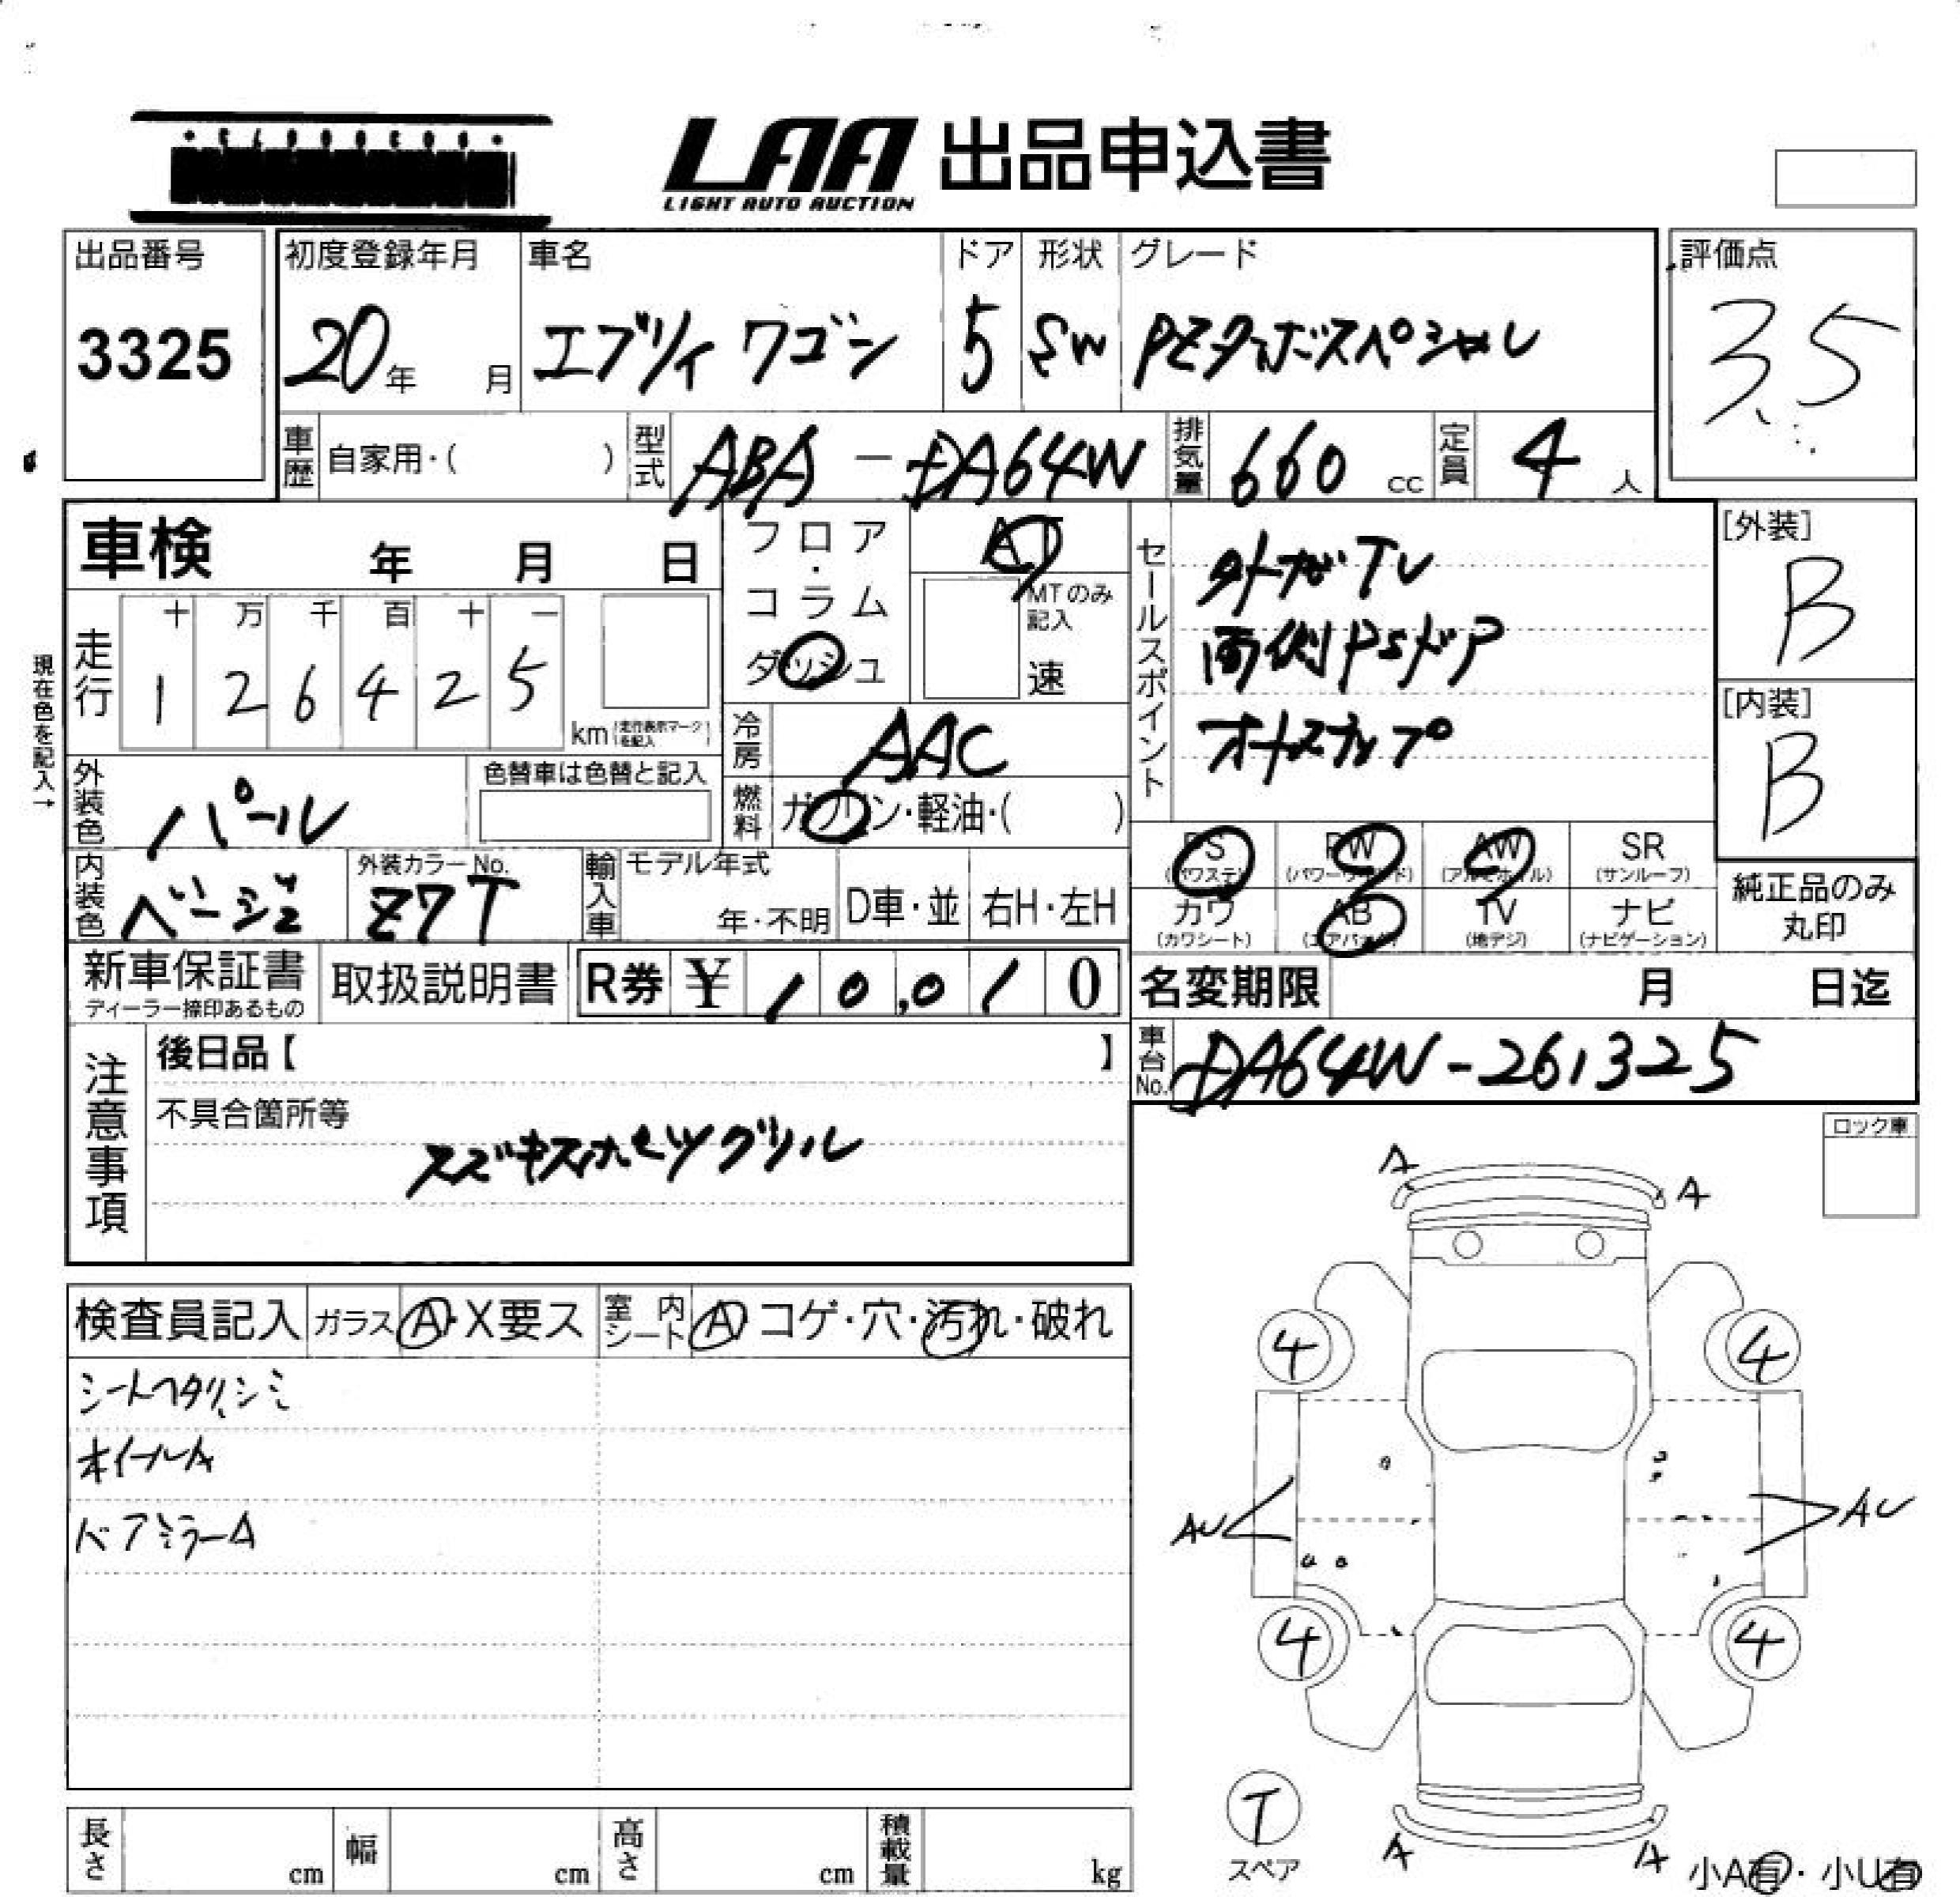 LAA 出品申込書
LIGHT AUTO AUCTION
出品番号
3325
初度登録年月
20年 月
車名
エブリイ ワゴン
ドア
5
形状
SW
グレード
PZターボスペシャル
評価点
3.5
車歴 自家用・( )
型式 ABA-DA64W
排気量 660 cc
定員 4 人
車検 年 月 日
フロア・コラム ダッシュ
AT
MTのみ記入
速
走行
十 万 千 百 十 一
1 2 6 4 2 5
km (走行表示マークを記入)
現在色を記入→
外装色 パール
色替車は色替と記入
冷房 AAC
燃料 ガソリン・軽油・( )
内装色 ベージュ
外装カラーNo.
Z7T
輸入車
モデル年式
年・不明
D車・並
右H・左H
セールスポイント
両側PSドア
[外装]
B
[内装]
B
PS (パワステ)
PW (パワーウィンド)
AW (アルミホイル)
SR (サンルーフ)
カワ (カワシート)
AB (エアバッグ)
TV (地デジ)
ナビ (ナビゲーション)
純正品のみ
丸印
新車保証書
ディーラー捺印あるもの
取扱説明書
R券 ¥ 10,010
名変期限 月 日迄
車台No. DA64W-261325
注意事項
後日品【 】
不具合箇所等
スズキスポーツグリル
ロック車
検査員記入
ガラス A・X要ス
室内シート A コゲ・穴・汚れ・破れ
シートヘタリ、シミ
ホイールA
ドアミラーA
A A
4 4
AU AU
4 4
T
スペア
A A
小A有・小U有
長さ cm
幅 cm
高さ cm
積載量 kg